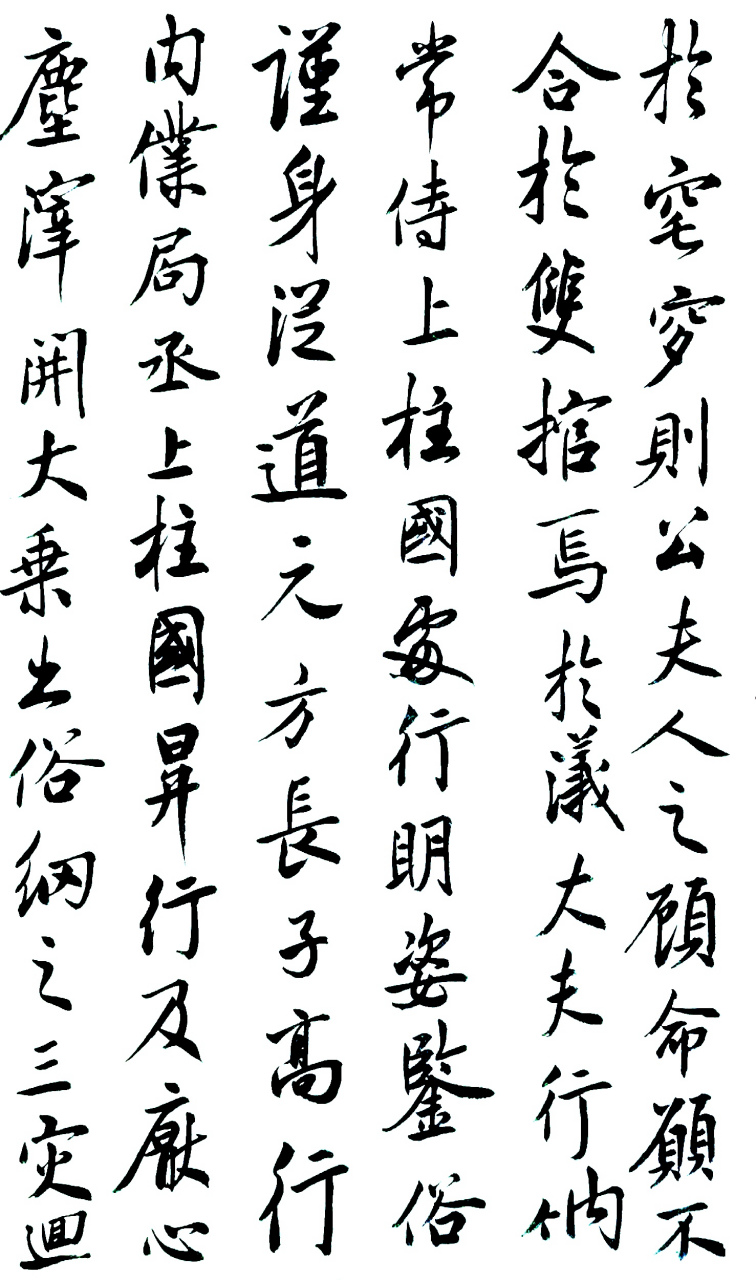 於窀穸則公夫人之顧命願不
合於雙棺焉於議大夫行內
常侍上柱國處行明姿鑒俗
謹身從道元方長子高行
內僕局丞上柱國昇行及厭心
塵滓開大乘出俗網之三災迴